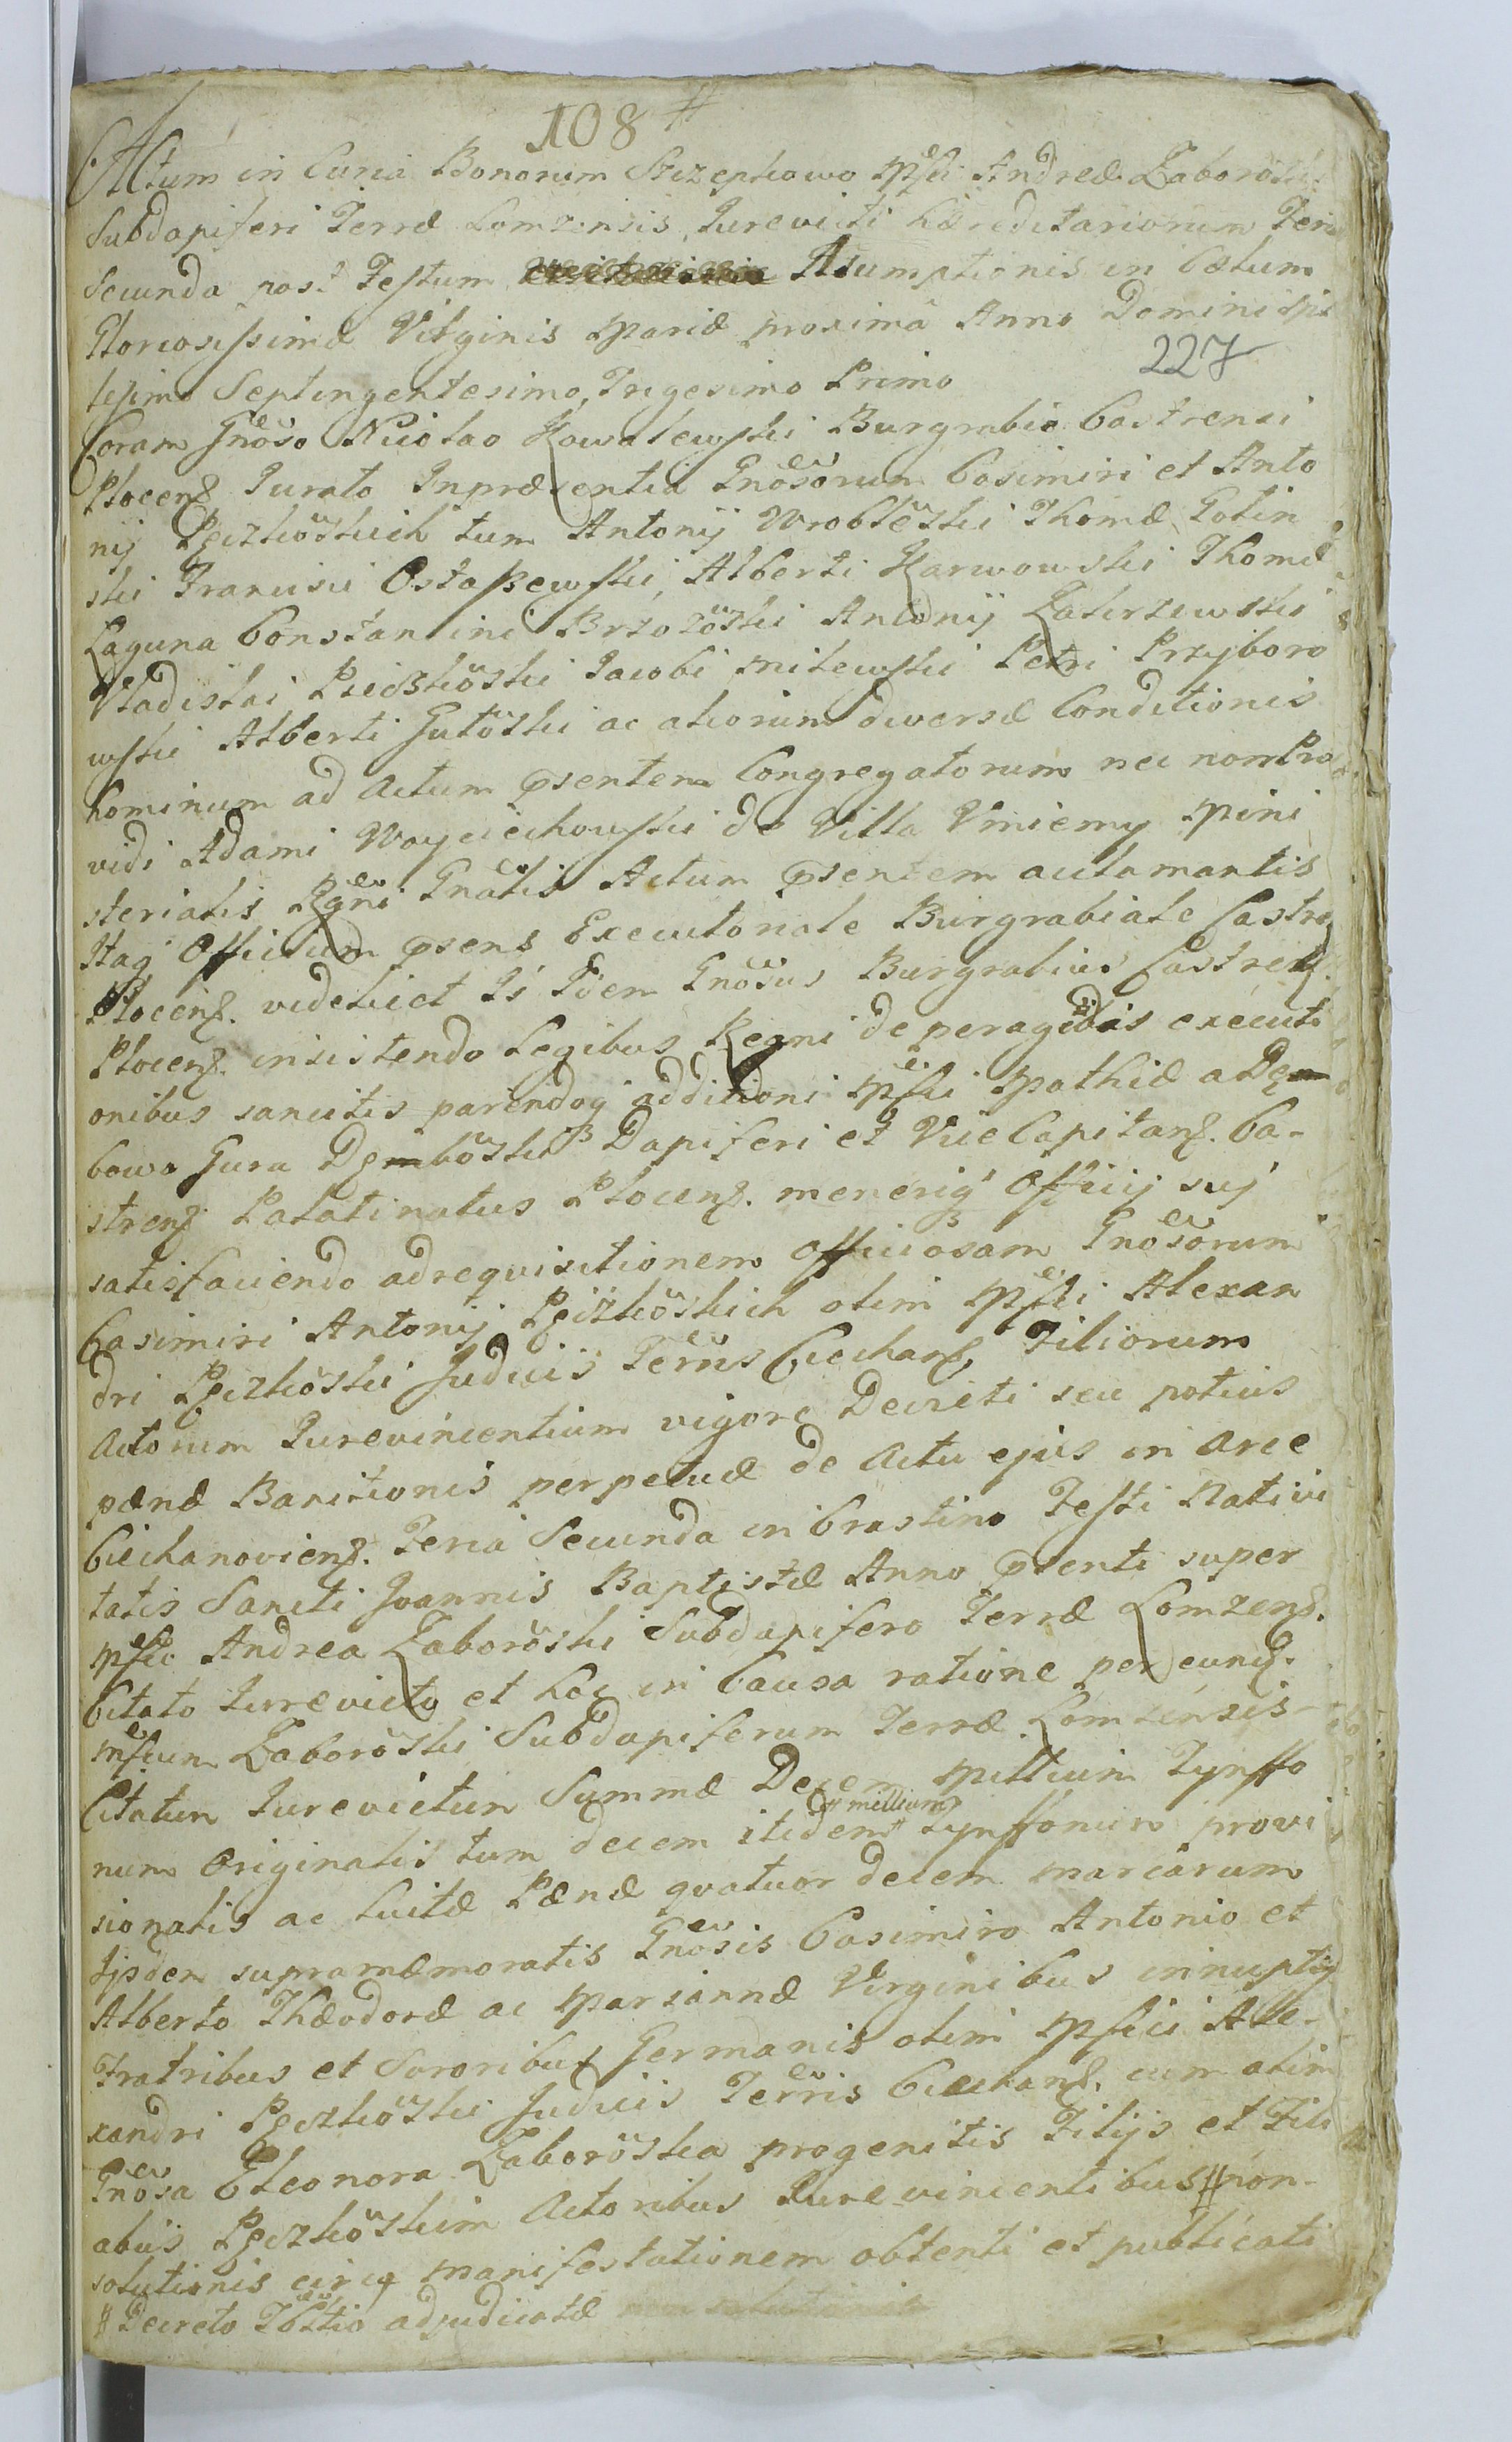 108 #
Actum in Curia Bonorum Strzeżkowo Mfci Andreæ Zaboroski
Subdapiferi Terræ Lomzensis, Jurevicti hæreditariorum Feria
Secunda post Festum Assumptionis in Cælum
Gloriosissimæ Virginis Mariæ proxima Anno Domini Mil
lesimo Septingentesimo, Trigesimo Primo
227
Coram Gnoso Nicolao Kowalewski Burgrabio Castrensi
Plocens Jurato Inpræsentia Gnosorum Casimiri et Anto
nij Pęczkoskich tum Antonij Wrobleski Thomæ Golin
ski Francisci Ostaszewski, Alberti Karwowski Thomæ
Laguna Constantini Brzozoski Antonij Zakrzewski
Vladislai Pieczkoski Jacobi Milewski Petri Przyboro
wski Alberti Gutoski ac aliorum diversæ Conditionis
hominum ad Actum psentem Congregatorum nec non Pro
vidi Adami Woyciechowski de Villa Uniemy Mini
sterialis Rgni Gnalis Actum psentem acclamantis
Itaq Officium psens Executoriale Burgrabiale Castre
Plocens. videlicet Is Idem Gnosus Burgrabius Castrens.
Plocens. insistendo Legibus Regni de peragendis executi
onibus sancitis parendoq additioni Mfci Mathiæ a Dęm
bowa Gura Dęmboski Dapiferi et Vice Capitans. Ca-
strens Palatinatus Plocens. munerisq Officij suj
satisfaciendo adrequisitionem officiosam Gnosorum
Casimiri Antonij Pęczkoskich olim Mfci Alexan
dri Pęczkoski Judicis Terris Ciechans Filiorum
Actorum Jurevincentium vigore Decreti seu potius
pænæ Banitionis perpetuæ de Actu ejus in Arce
Ciechanoviens. Feria Secunda in Crastino Festi Nativi
tatis Sancti Joannis Baptistæ Anno psenti super
Mfco Andrea Zaboroski Subdapifero Terræ Lomzens.
Citato Jurevicto et hoc in Causa ratione per eund.
Mfcum Zaboroski Subdapiferum Terræ Lomzensis-
Citatum Jurevictum Summæ Decem Millium Tynffo
num Originalis tum decem itidem # millium Tynffonum provi
sionalis ac luitæ Pænæ qvatuor decem marcarum
Ijsdem supramæmoratis Gnosis Casimiro Antonio et
Alberto Theodoræ ac Mariannæ Virginibus innuptis
Fratribus et Sororibus Germanis olim Mfici Ale-
xandri Pęczkoski Judicis Terris Ciechans. cum olim
Gnosa Eleonora Zaboroska progenitis Filijs et Fili
abus Pęczkoskim Actoribus Jurevincentibus # non-
solutionis circa manifestationem obtenti et publicati
# Decreto Tbltio adjudicatæ